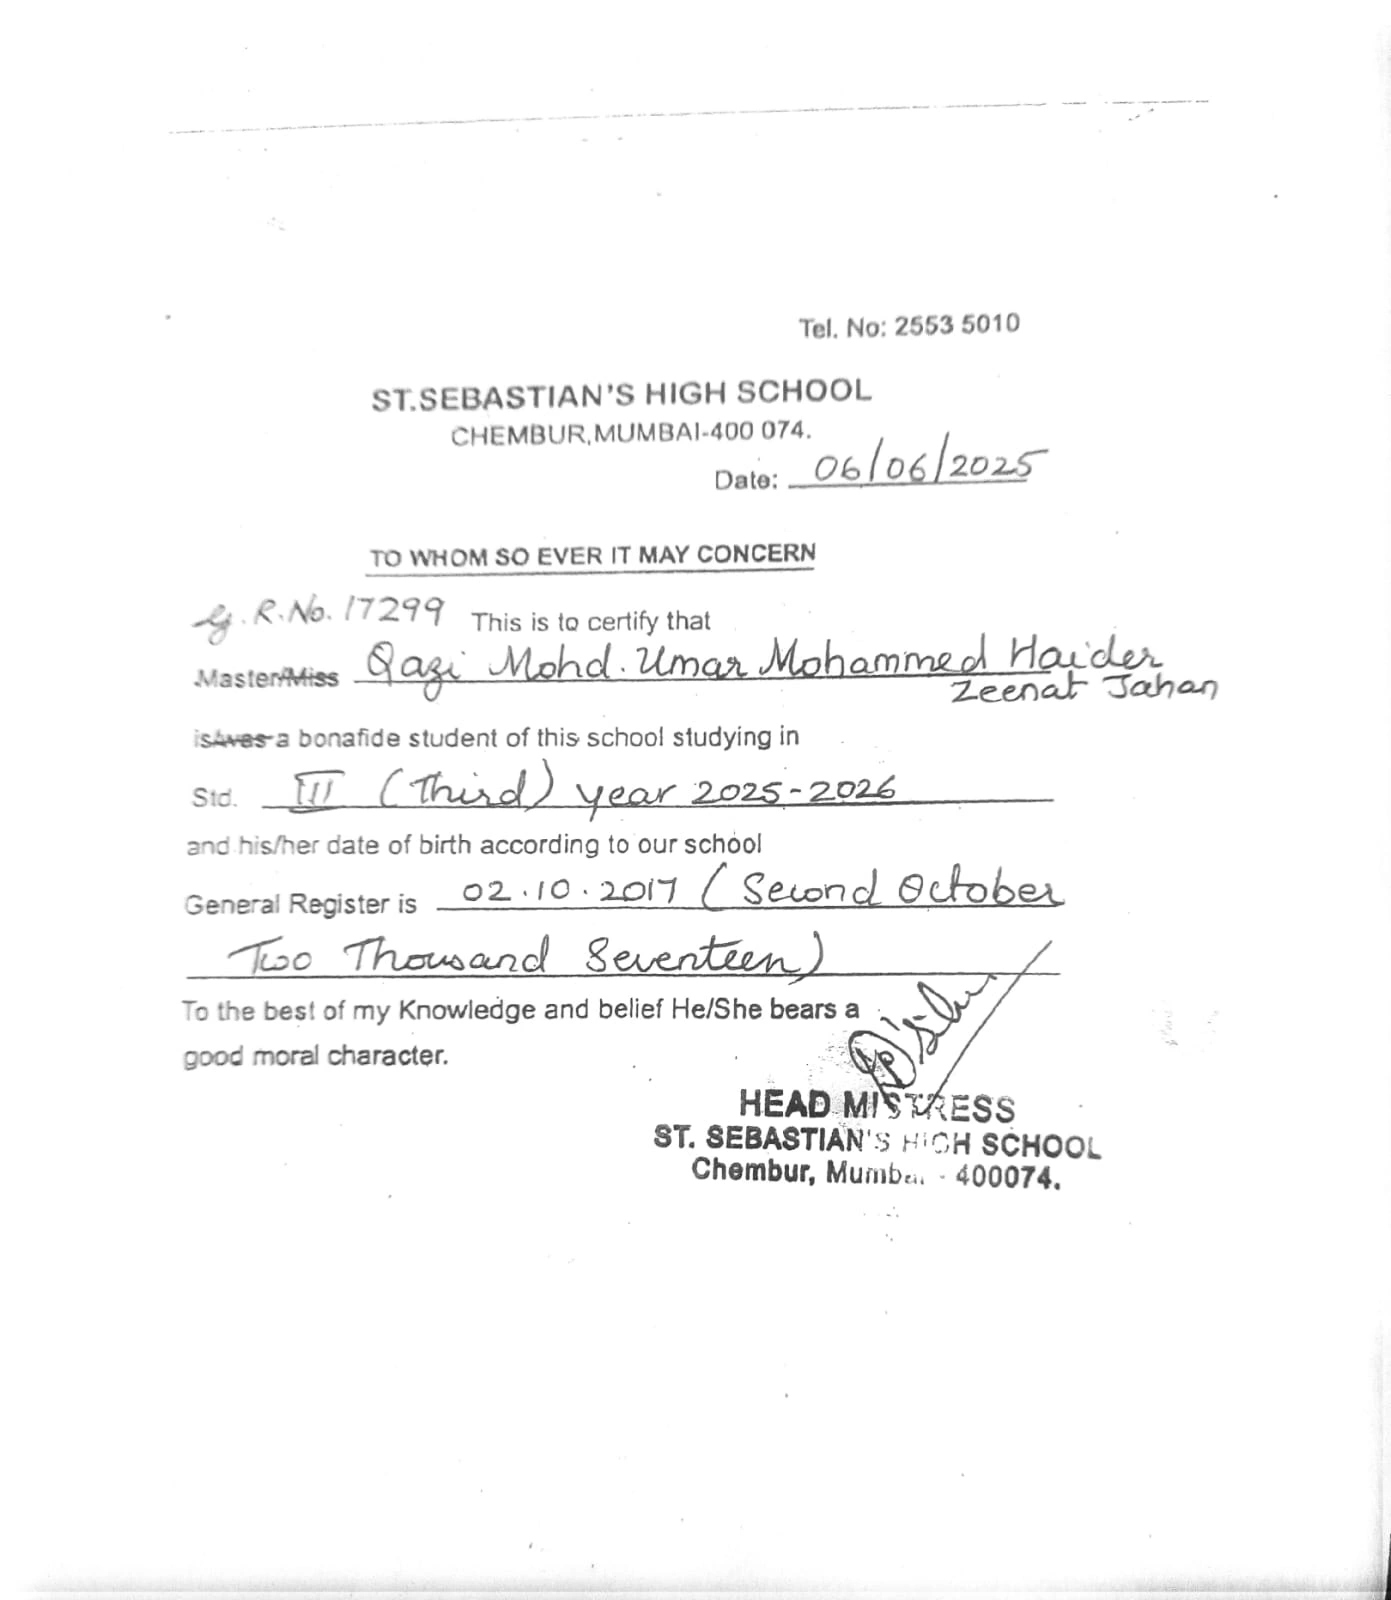 Tel. No: 2553 5010
ST.SEBASTIAN'S HIGH SCHOOL
CHEMBUR,MUMBAI-400 074.
Date: 06/06/2025
TO WHOM SO EVER IT MAY CONCERN
G.R.No. 17299 This is to certify that
Master/Miss Qazi Mohd. Umar Mohammed Haider
Zeenat Jahan
is/was a bonafide student of this school studying in
Std. III (Third) year 2025-2026
and his/her date of birth according to our school
General Register is 02.10.2017 (Second October
Two Thousand Seventeen)
To the best of my Knowledge and belief He/She bears a
good moral character.
HEAD MISTRESS
ST. SEBASTIAN'S HIGH SCHOOL
Chembur, Mumbai - 400074.